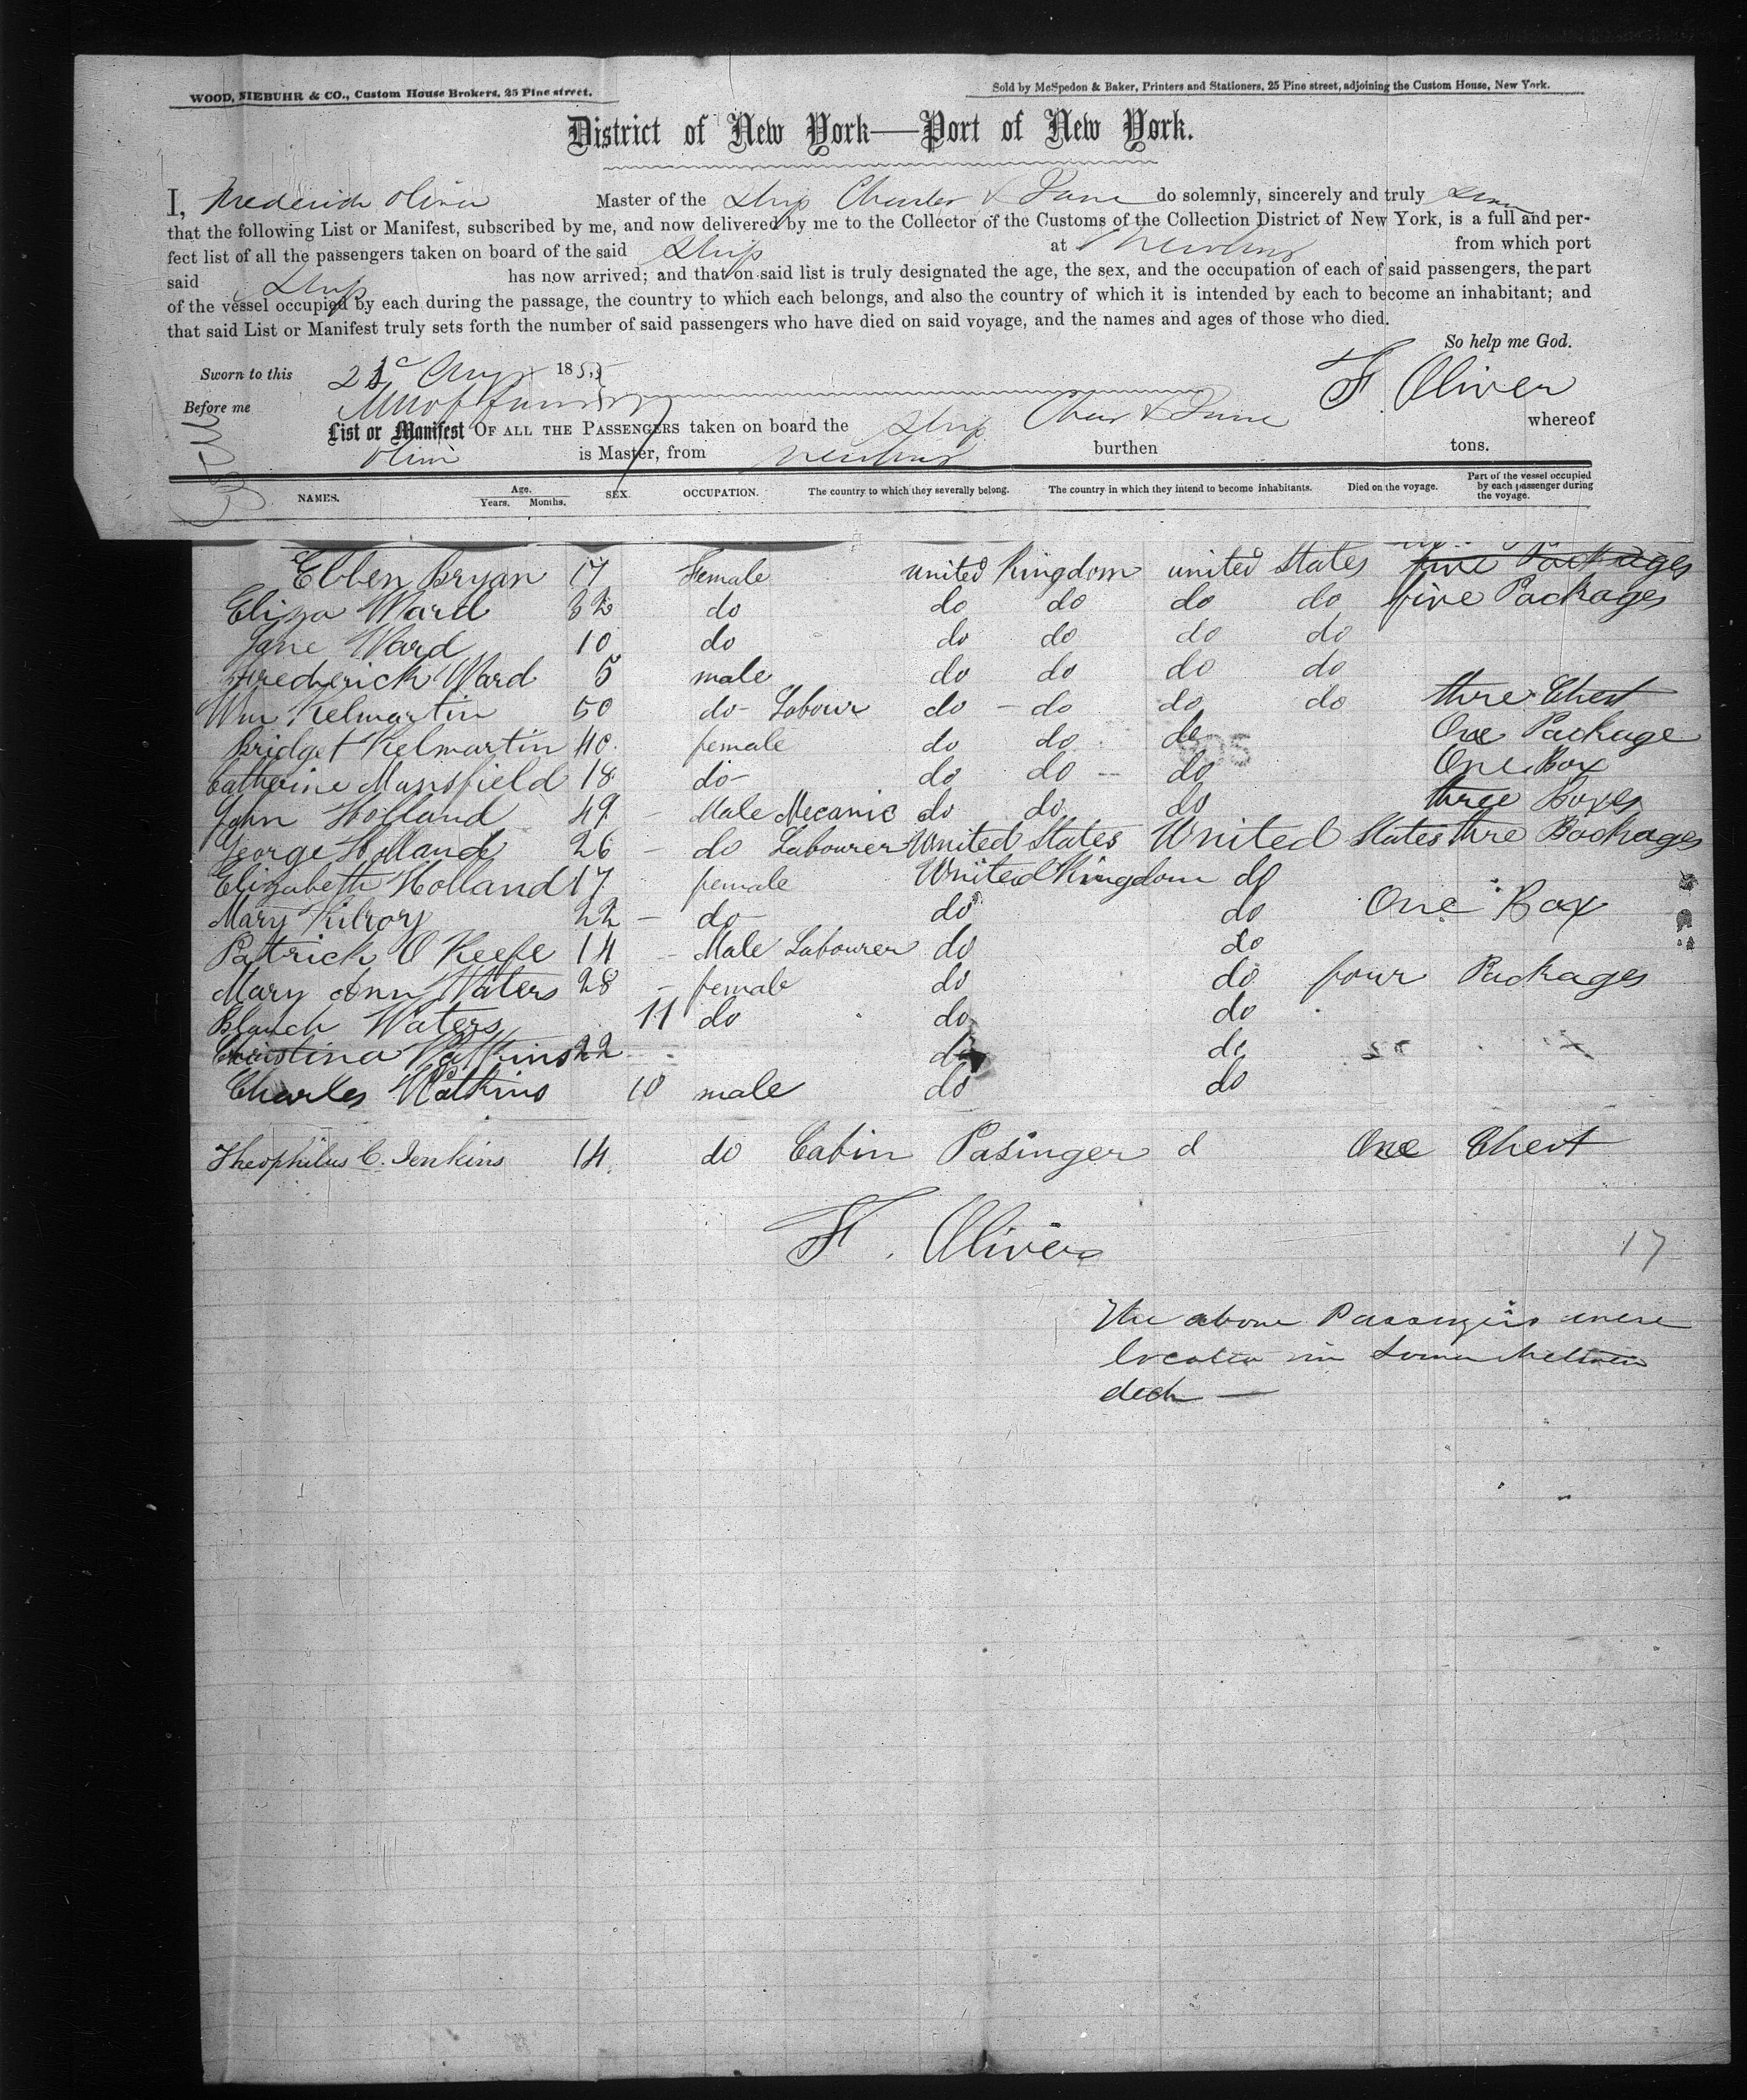 WOOD, NIEBUHR & CO., Custom House Brokers, 25 Pine street.
Sold by McSpedon & Baker, Printers and Stationers, 25 Pine street, adjoining the Custom House, New York.
District of New York—Port of New York.
I, Frederick Oliver Master of the Ship Charles & Jane do solemnly, sincerely and truly
that the following List or Manifest, subscribed by me, and now delivered by me to the Collector of the Customs of the Collection District of New York, is a full and per-
fect list of all the passengers taken on board of the said Ship at from which port
said Ship has now arrived; and that on said list is truly designated the age, the sex, and the occupation of each of said passengers, the part
of the vessel occupied by each during the passage, the country to which each belongs, and also the country of which it is intended by each to become an inhabitant; and
that said List or Manifest truly sets forth the number of said passengers who have died on said voyage, and the names and ages of those who died.
So help me God.
Sworn to this Aug 185
F. Oliver
Before me
List or Manifest OF ALL THE PASSENGERS taken on board the Ship Chas & Jane whereof
Oliver is Master, from burthen tons.
NAMES. Age. Years. Months. SEX. OCCUPATION. The country to which they severally belong. The country in which they intend to become inhabitants. Died on the voyage. Part of the vessel occupied by each passenger during the voyage.
Ellen Bryan 17 Female united Kingdom united States five Packages
Eliza Ward 32 do do do do do five Packages
Jane Ward 10 do do do do do
Frederick Ward 5 male do do do do
Wm Kelmartin 50 do - Labour do - do do do thre Chest
Bridget Kelmartin 40. female do do do One Package
Catherine Mansfield 18 do - do do -- do One Box
John Holland 49 - Male Mecanic do do do three Boxes
George Holland 26 - do Labourer United States United States thre Packages
Elizabeth Holland 17 female United Kingdom do
Mary Kilroy 22 - do - do do One Box
Patrick O Keefe 14 - Male Labourer do do
Mary Ann Waters 28 - female do do four Packages
Blanch Waters 11 do do do
Christina Watkins 22 do do
Charles Watkins 10 male do do
Theophilus C. Jenkins 14. do Cabin Pasinger d One Chest
F. Oliver
17
The above Passengers were
located in
deck —